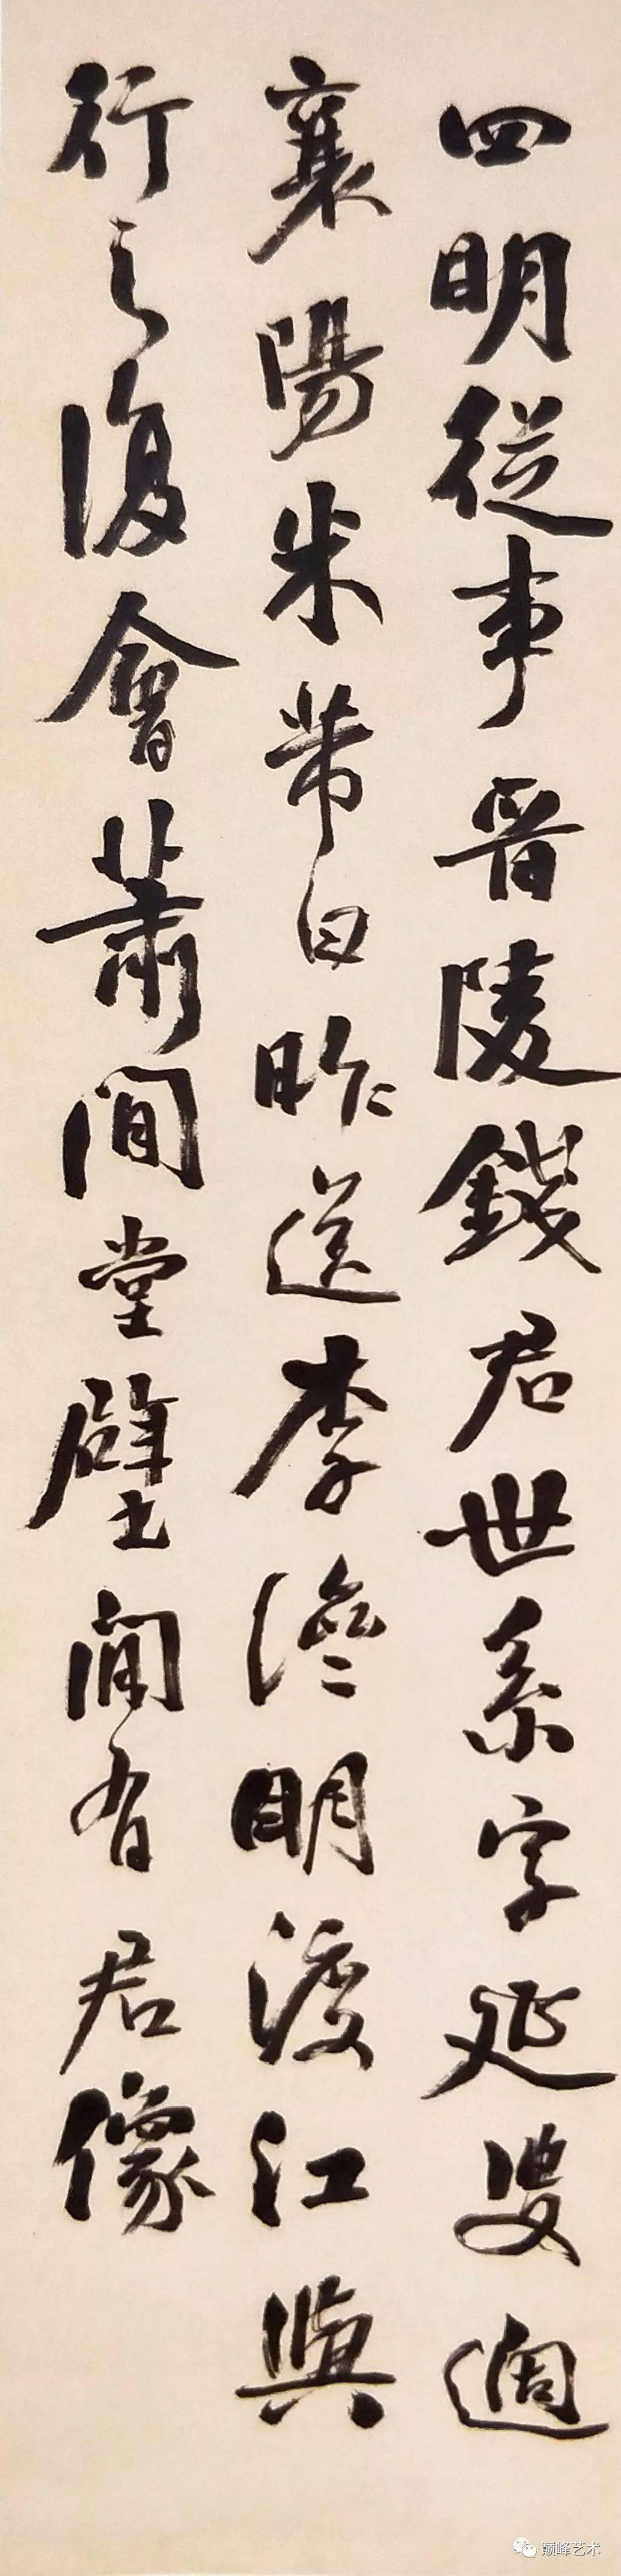 四明從事晋陵錢君世系字延叟過
襄陽米芾曰昨送李滲明渡江與
行之復會蕭閒堂壁間有君像
巅峰艺术